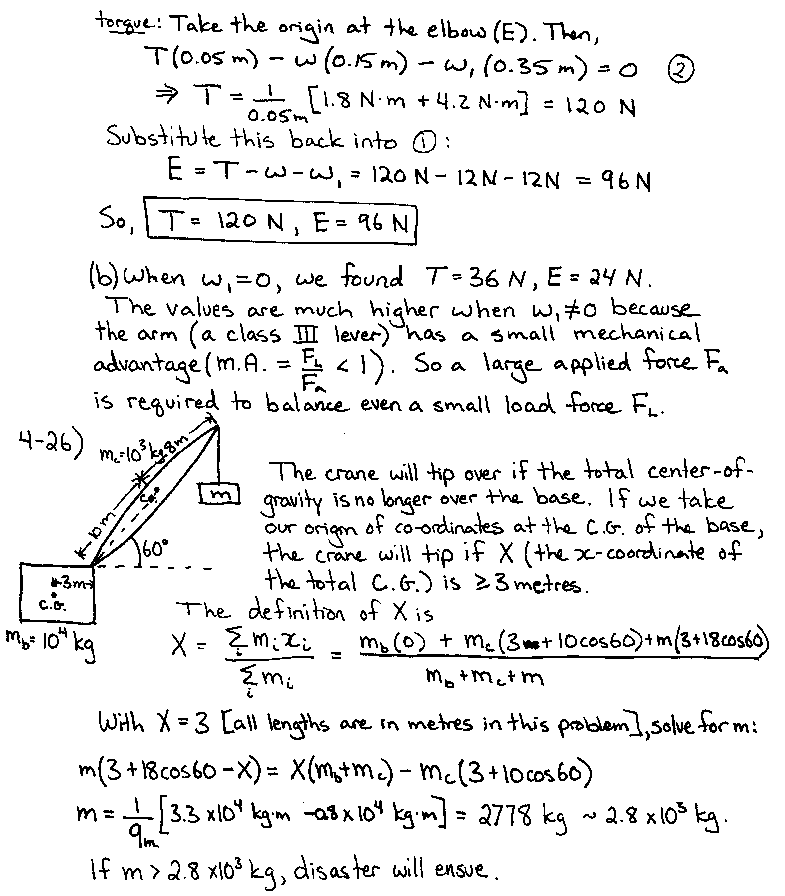 torque: Take the origin at the elbow (E). Then,
T(0.05 m) - w(0.15 m) - w₁(0.35 m) = 0 ②
⇒ T = 1/0.05m [1.8 N·m + 4.2 N·m] = 120 N
Substitute this back into ①:
E = T - w - w₁ = 120 N - 12 N - 12 N = 96 N
So, T = 120 N, E = 96 N
(b) When w₁=0, we found T = 36 N, E = 24 N.
The values are much higher when w₁≠0 because
the arm (a class III lever) has a small mechanical
advantage (m.A. = F_L/F_a < 1). So a large applied force F_a
is required to balance even a small load force F_L.
4-26)
m_c=10³ kg
8m
10m
c.G.
m
60°
3m
C.G.
m_b = 10⁴ kg
The crane will tip over if the total center-of-
gravity is no longer over the base. If we take
our origin of co-ordinates at the C.G. of the base,
the crane will tip if X (the x-coordinate of
the total C.G.) is ≥ 3 metres.
The definition of X is
X = Σ_i m_i x_i / Σ_i m_i = m_b(0) + m_c(3 + 10cos60) + m(3+18cos60) / m_b + m_c + m
With X = 3 [all lengths are in metres in this problem], solve for m:
m(3 + 18cos60 - X) = X(m_b + m_c) - m_c(3 + 10cos60)
m = 1/9m [3.3 x10⁴ kg·m - 0.8 x 10⁴ kg·m] = 2778 kg ~ 2.8 x10³ kg.
If m > 2.8 x10³ kg, disaster will ensue.